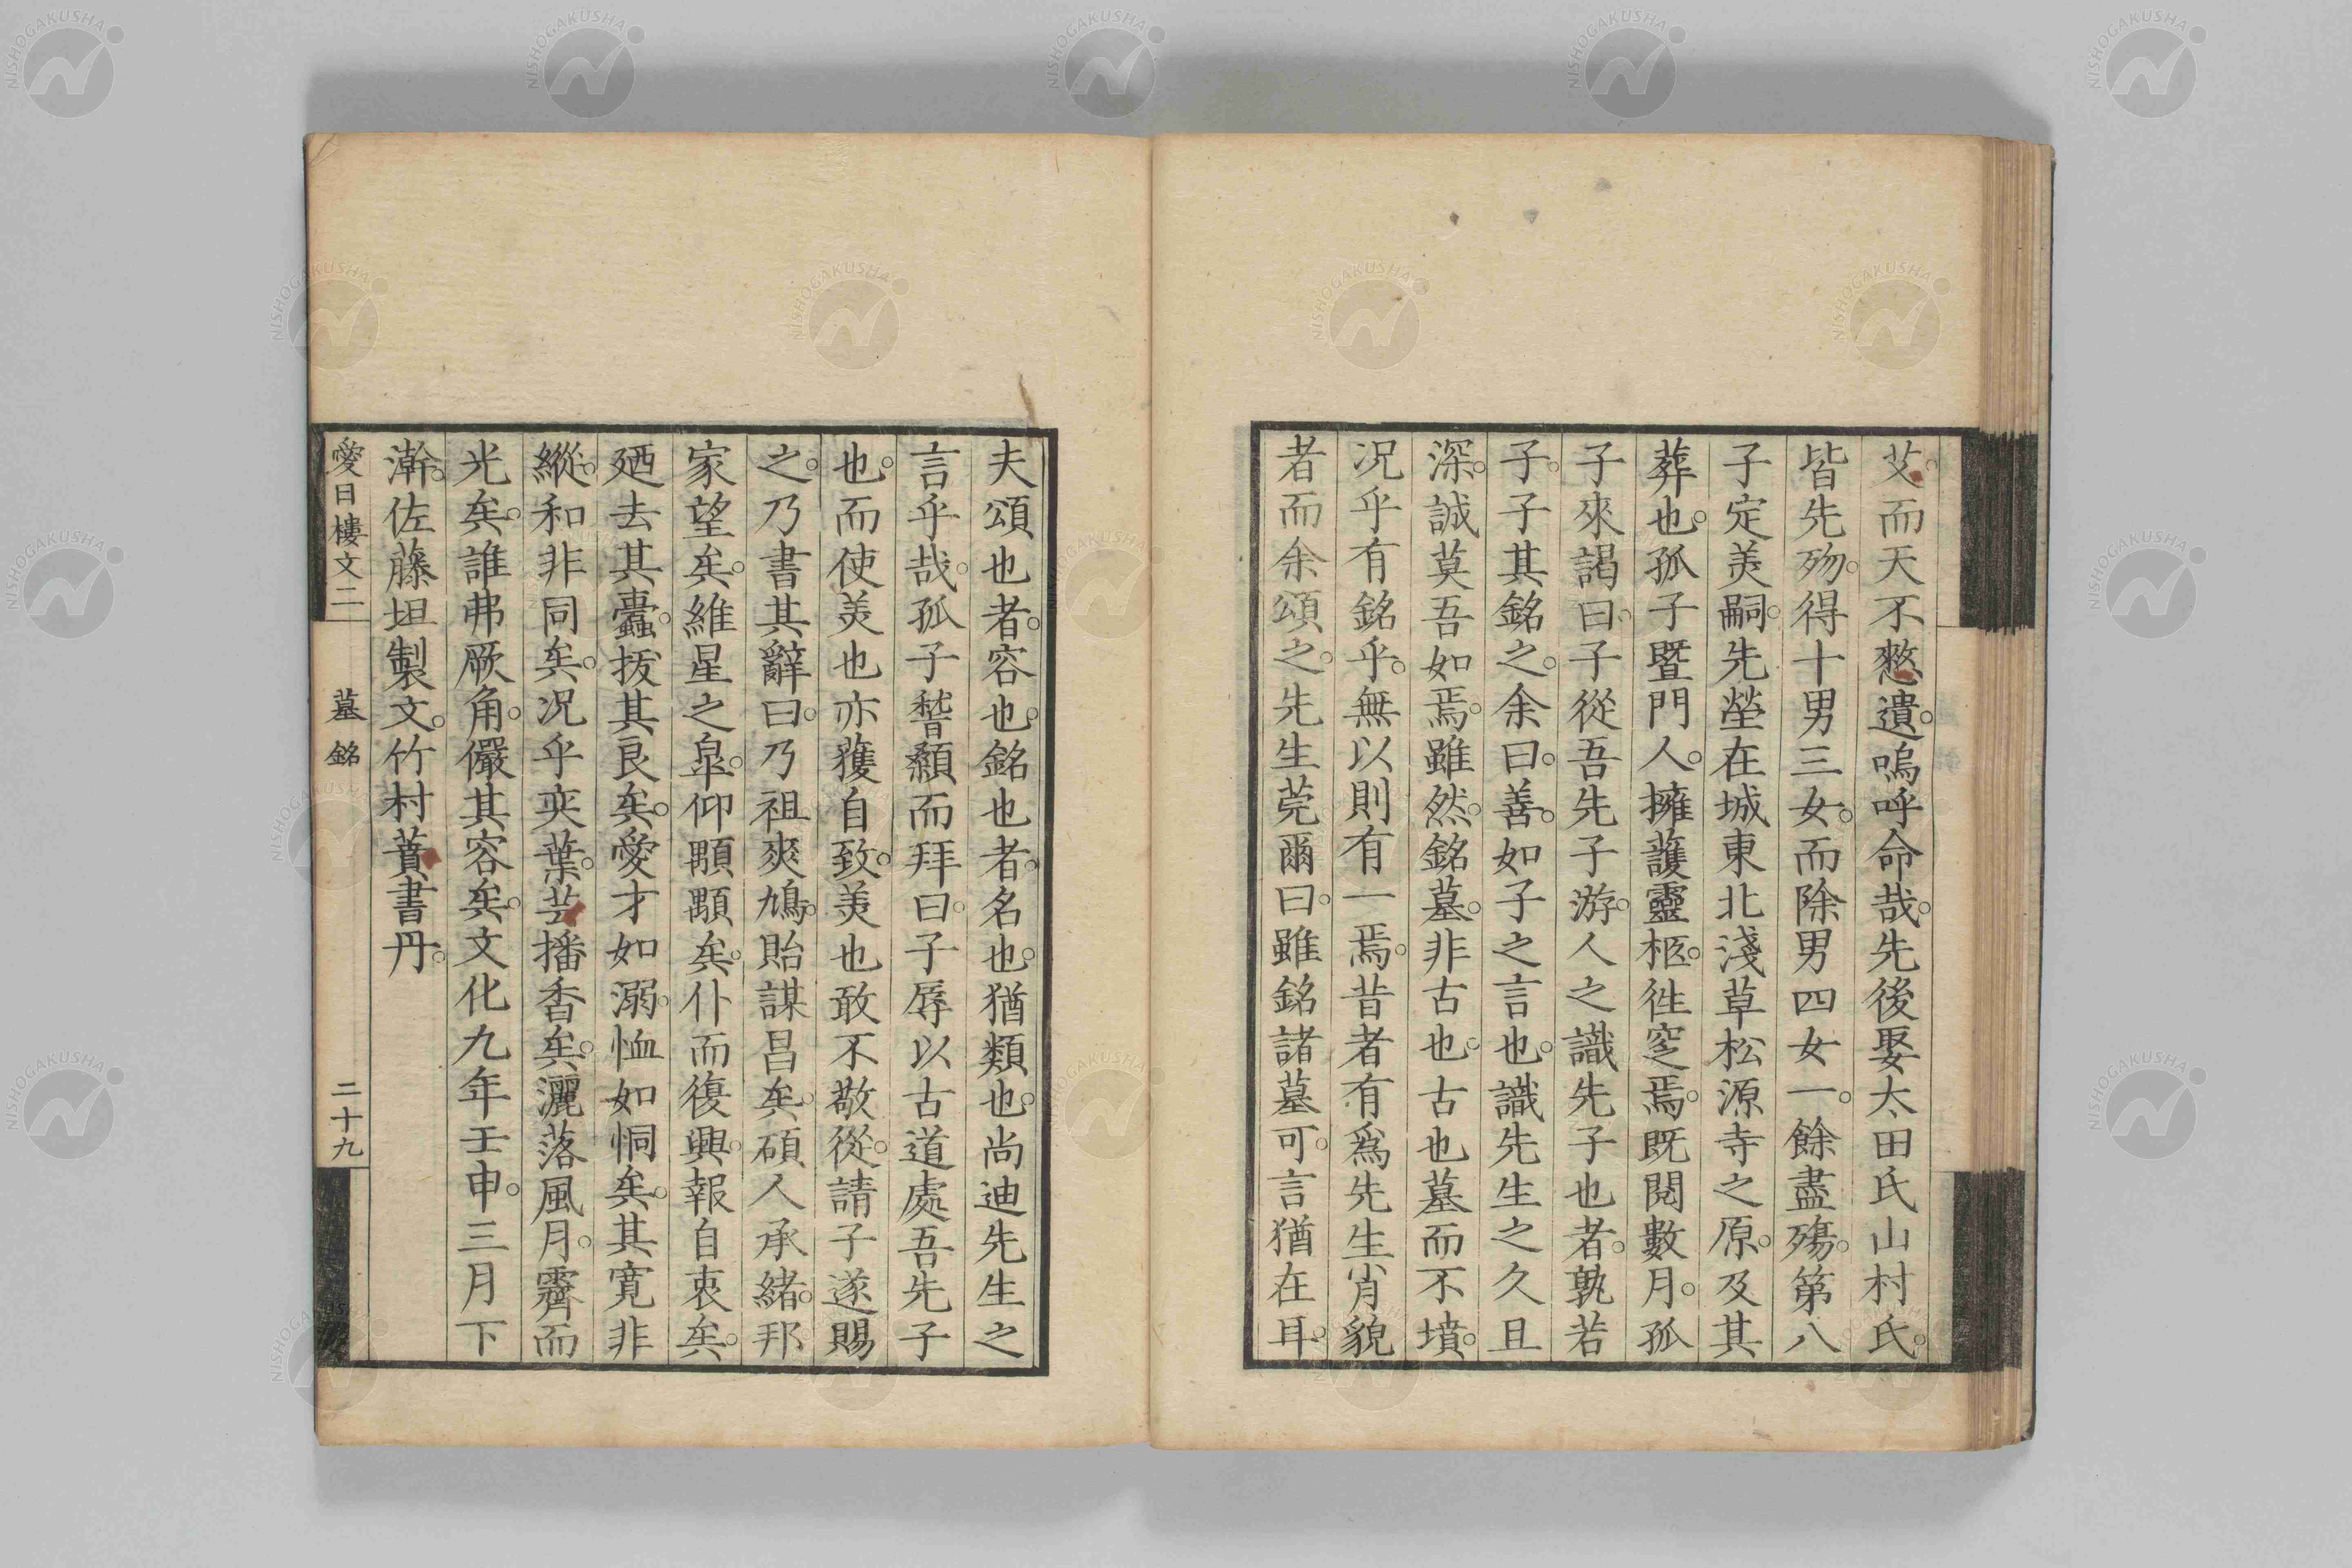 艾。而天不憗遺。嗚呼命哉。先後娶太田氏山村氏。
皆先歾。得十男三女。而除男四女一。餘盡殤。第八
子定羙嗣。先塋在城東北淺草松源寺之原。及其
葬也。孤子曁門人。擁護靈柩。徃窆焉。既閱數月。孤
子來謁曰。子從吾先子游。人之識先子也者。孰若
子。子其銘之。余曰。善。如子之言也。識先生之久且
深。誠莫吾如焉。雖然。銘墓。非古也。古也墓而不墳。
况乎有銘乎。無以則有一焉。昔者有爲先生肖貌
者而余頌之。先生莞爾曰。雖銘諸墓可。言猶在耳。
夫頌也者。容也。銘也者。名也。猶類也。尚迪先生之
言乎哉。孤子嵇顙而拜曰。子辱以古道處吾先子
也。而使羙也亦獲自致。羙也敢不敬從。請子遂賜
之。乃書其辭曰。乃祖爽鳩。貽謀昌矣。碩人承緒。邦
家望矣。維星之皐。仰顒顒矣。仆而復興。報自衷矣。
廼去其蠹。拔其良矣。愛才如溺。恤如恫矣。其寛非
縱。和非同矣。况乎奕葉。芸播香矣。灑落風月。霽而
光矣。誰弗厥角。儼其容矣。文化九年壬申。三月下
澣。佐藤坦製文。竹村蕡書丹。
愛日樓文二 墓銘 二十九